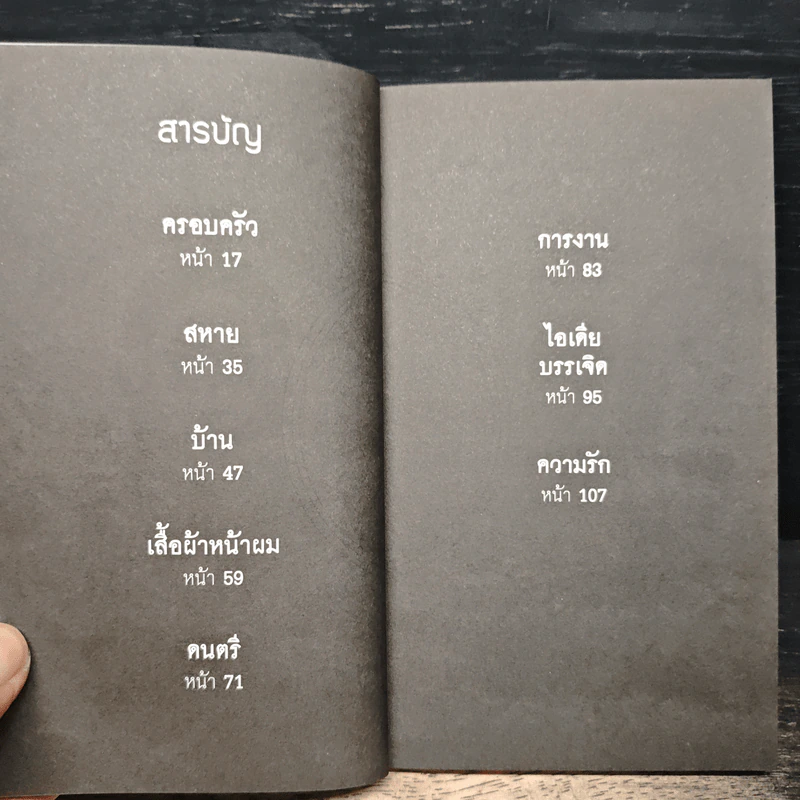 สารบัญ
ครอบครัว
หน้า 17
สหาย
หน้า 35
บ้าน
หน้า 47
เสื้อผ้าหน้าผม
หน้า 59
ดนตรี
หน้า 71
การงาน
หน้า 83
ไอเดีย
บรรเจิด
หน้า 95
ความรัก
หน้า 107